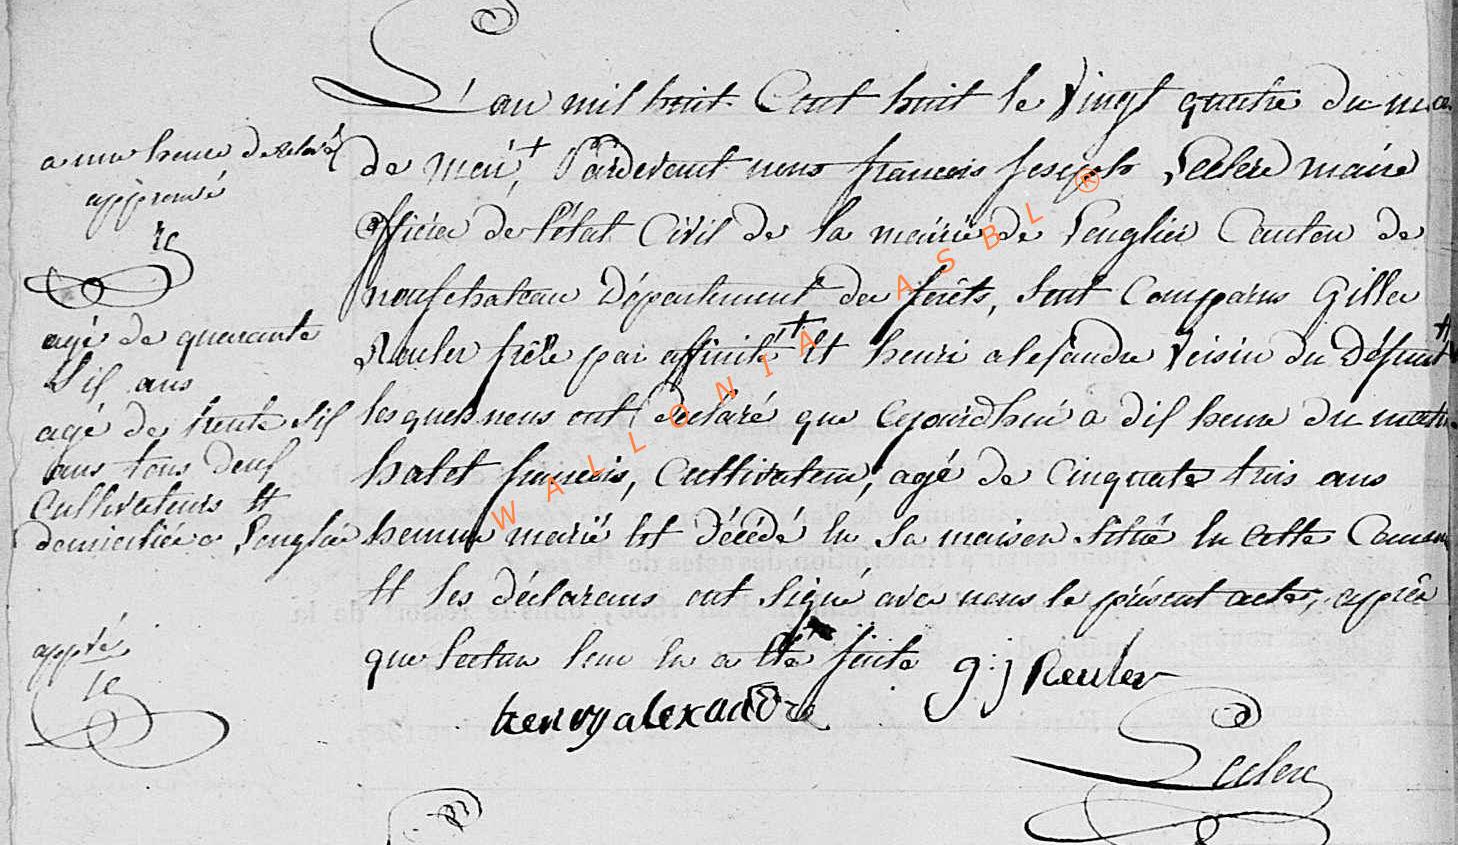 L'an mil huit Cent huit le Vingt quatre du moi
de mai + Pardevant nous francois Joseph Leclerc maire
officier de L'état Civil de la mairie de Longlier Canton de
neufchateau Département des forêts, sont Comparus Gilles
Reuler frêre par affinité + Et henri alexandre Voisin du Défunt #
lesquels nous ont Déclaré que Cejourdhui a dix heure du matin
halet francois, Cultivateur, agé de Cinquante trois ans
homme marié Est Décédé En Sa maison Sitüé En Cette Commune
Et les déclarans ont Signé avec nous le présent acte, après
que Lecture Leur En a Eté faite g:j Reuler
henry alexandre
Leclerc
a une heure de relevé
approuvé
Le
agé de quarante
Six ans
agé de trente Six
ans tous deux
Cultivateurs Et
domiciliés a Longlier
appvé
Le
WALLONIA ASBL ®